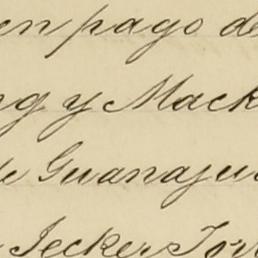 en pago de
ng y Mack
de Guanajua
Jecker Torr